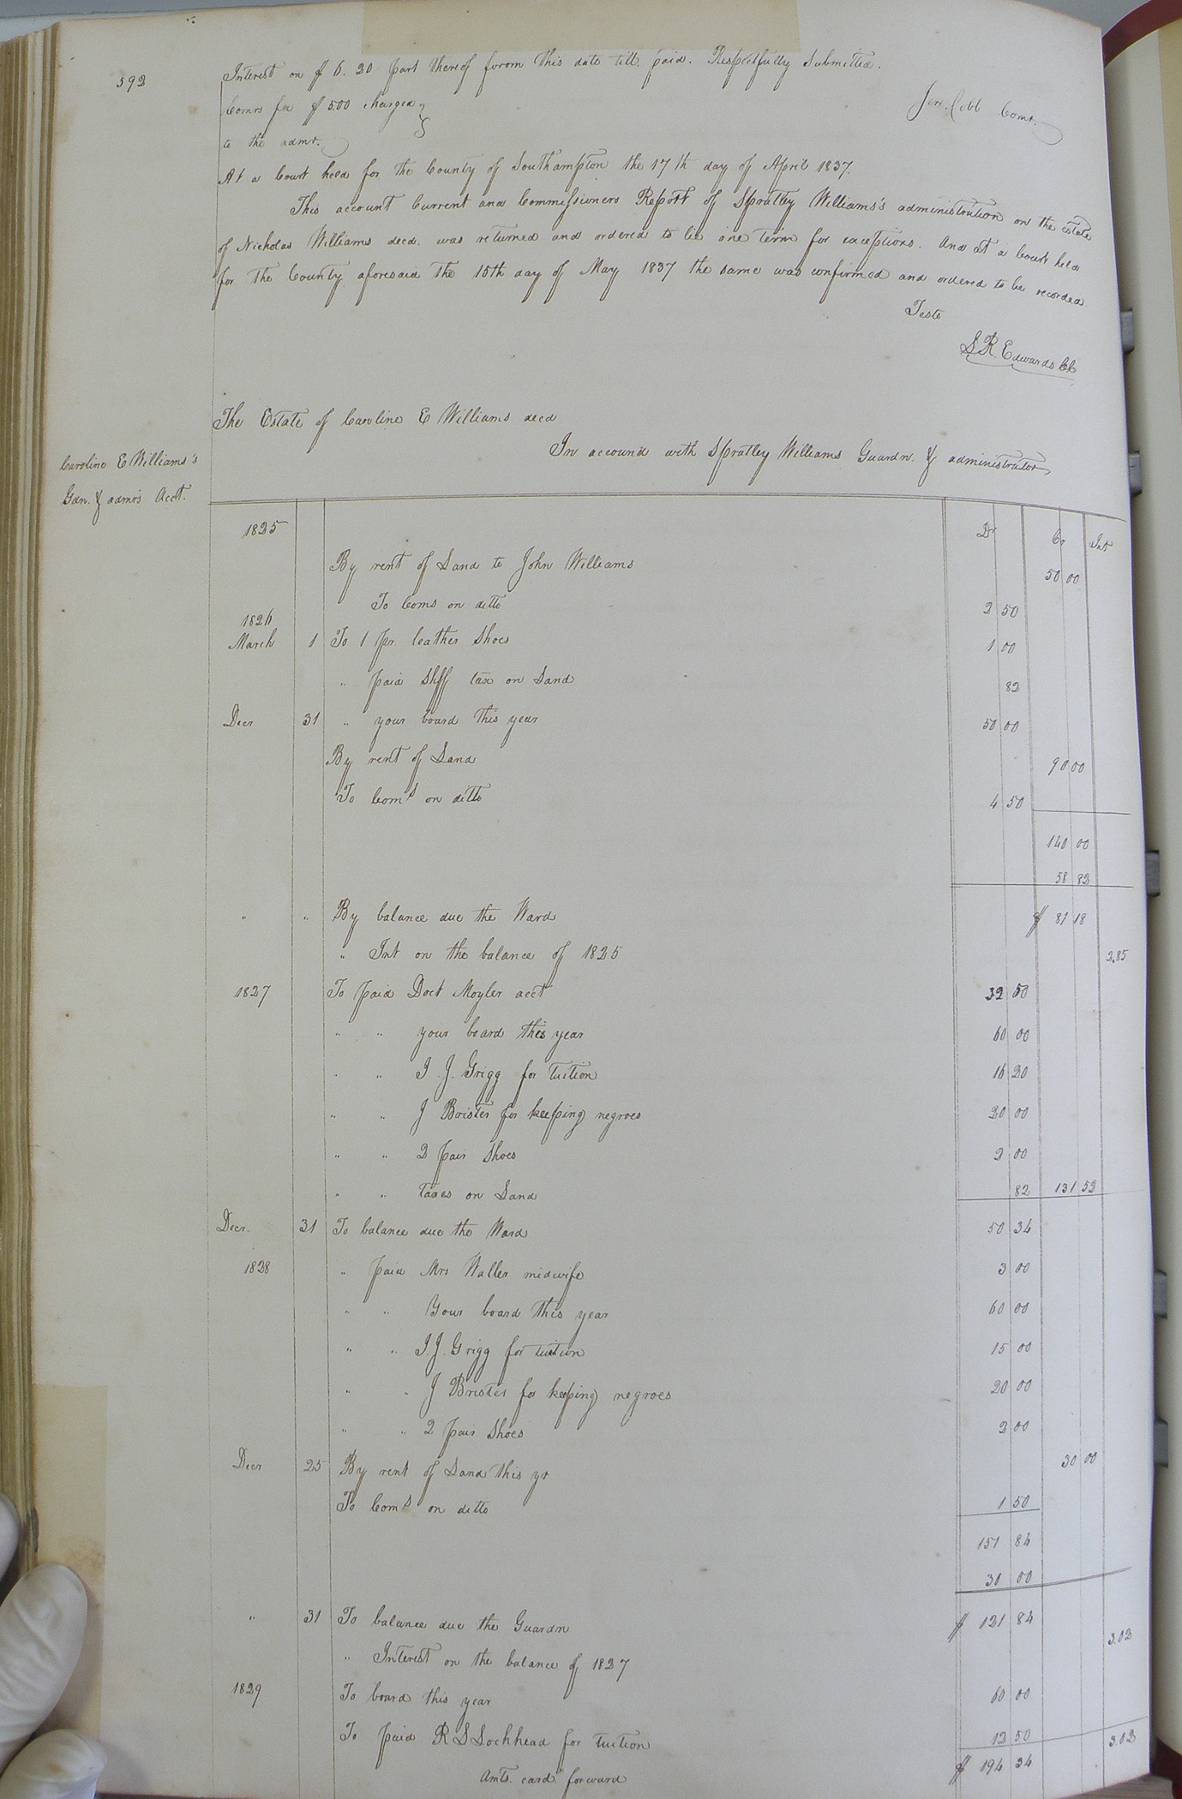 592
Interest on $6.20 part thereof from this date till paid. Respectfully Submitted.
Comrs fee $5.00 charged
to the admr.
Jere. Cobb Comr.
At a Court held for the County of Southampton the 17th day of April 1837.
This account Current and Commissioners Report of Spratley Williams's administration on the estate
of Nicholas Williams decd. was returned and ordered to lie one term for exceptions. And at a Court held
for the County aforesaid the 15th day of May 1837 the same was confirmed and ordered to be recorded.
Teste
L R. Edwards Clk
The Estate of Caroline E Williams decd
In account with Spratley Williams Guardn. & administrator
Caroline E Williams's
Gdn. & admr's Acct.
1825 Dr Cr Int
By rent of Land to John Williams 50 00
To Coms on ditto 2 50
1826
March 1 To 1 pr. leather Shoes 1 00
" paid Shff tax on Land 82
Decr 31 " your board this year 50 00
By rent of Land 90 00
To Coms on ditto 4 50
140 00
58 82
" " By balance due the Ward $ 81 18
" Int on the balance of 1825 2.85
1827 To paid Doct Moyler acct 32 50
" " your board this year 60 00
" " I. J. Grigg for tuition 16 20
" " J Brister for keeping negroes 20 00
" " 2 pair Shoes 2 00
" " taxes on Land 82 131 52
Decr. 31 To balance due the Ward 50 34
1828 " paid Mrs Waller midwife 3 00
" " Your board this year 60 00
" " I J. Grigg for tuition 15 00
" " J Brister for keeping negroes 20 00
" " 2 pair Shoes 2 00
Decr 25 By rent of Land this yr 30 00
To Coms on ditto 1 50
151 84
30 00
" 31 To balance due the Guardn $ 121 84
" Interest on the balance of 1827 3.02
1829 To board this year 60 00
To paid R S Lochhead for tuition 12 50 3.02
Amts. card forward $ 194 34